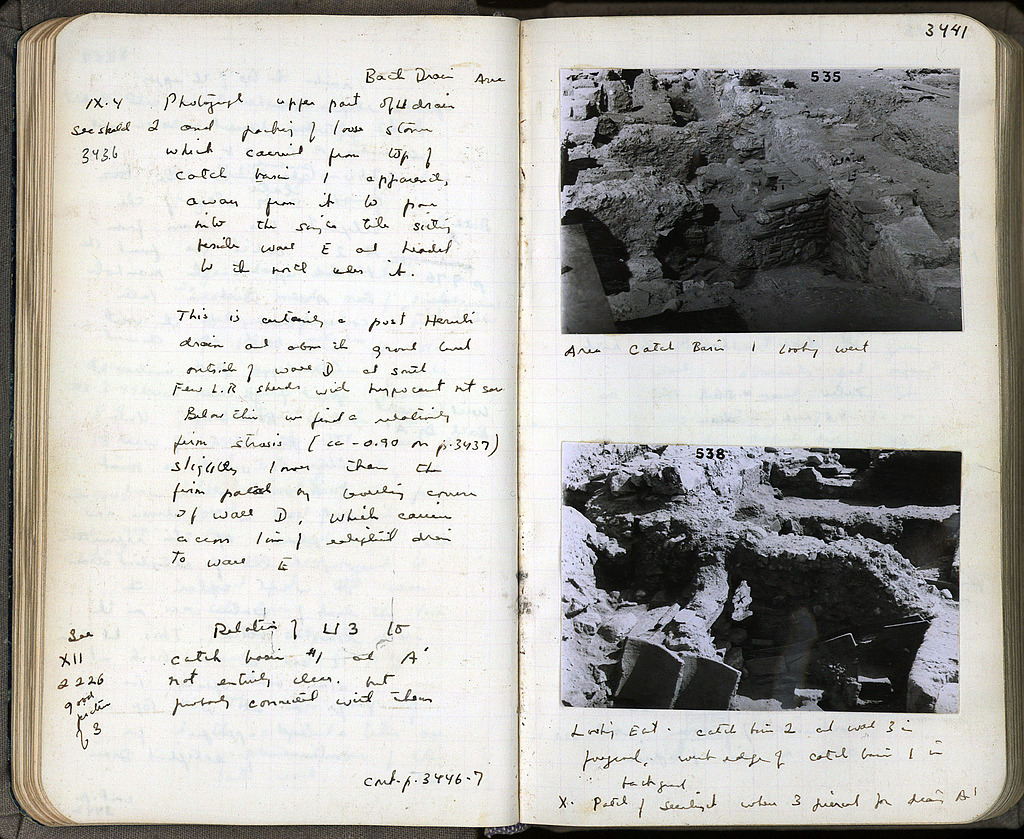 Back Drain Area
IX.4 Photograph upper part of drain
See sketch 2 and packing of lower stones
3436 which carried from top of
catch basin 1 apparently
away from it to pour
into the single tile setting
beside wall E and headed
to the north under it.
This is certainly a post Heruli
drain and above the ground level
outside of wall D at south
Few L.R sherds with
Below this we find a relatively
firm strosis (ca -0.90 on p.3437)
slightly lower than the
firm patch
of wall D, which carries
across line of drain
to wall E
See
XII
2226
good
picture
of 3
Relation of 3 to
catch basin #1 and A'
not entirely clear. but
probably connected with them
cont. p. 3446-7
3441
535
Area Catch Basin 1 looking west
538
Looking East. catch basin 2 and wall 3 in
foreground, west edge of catch basin 1 in
background
X. Patch of where 3 pierced for drain A'